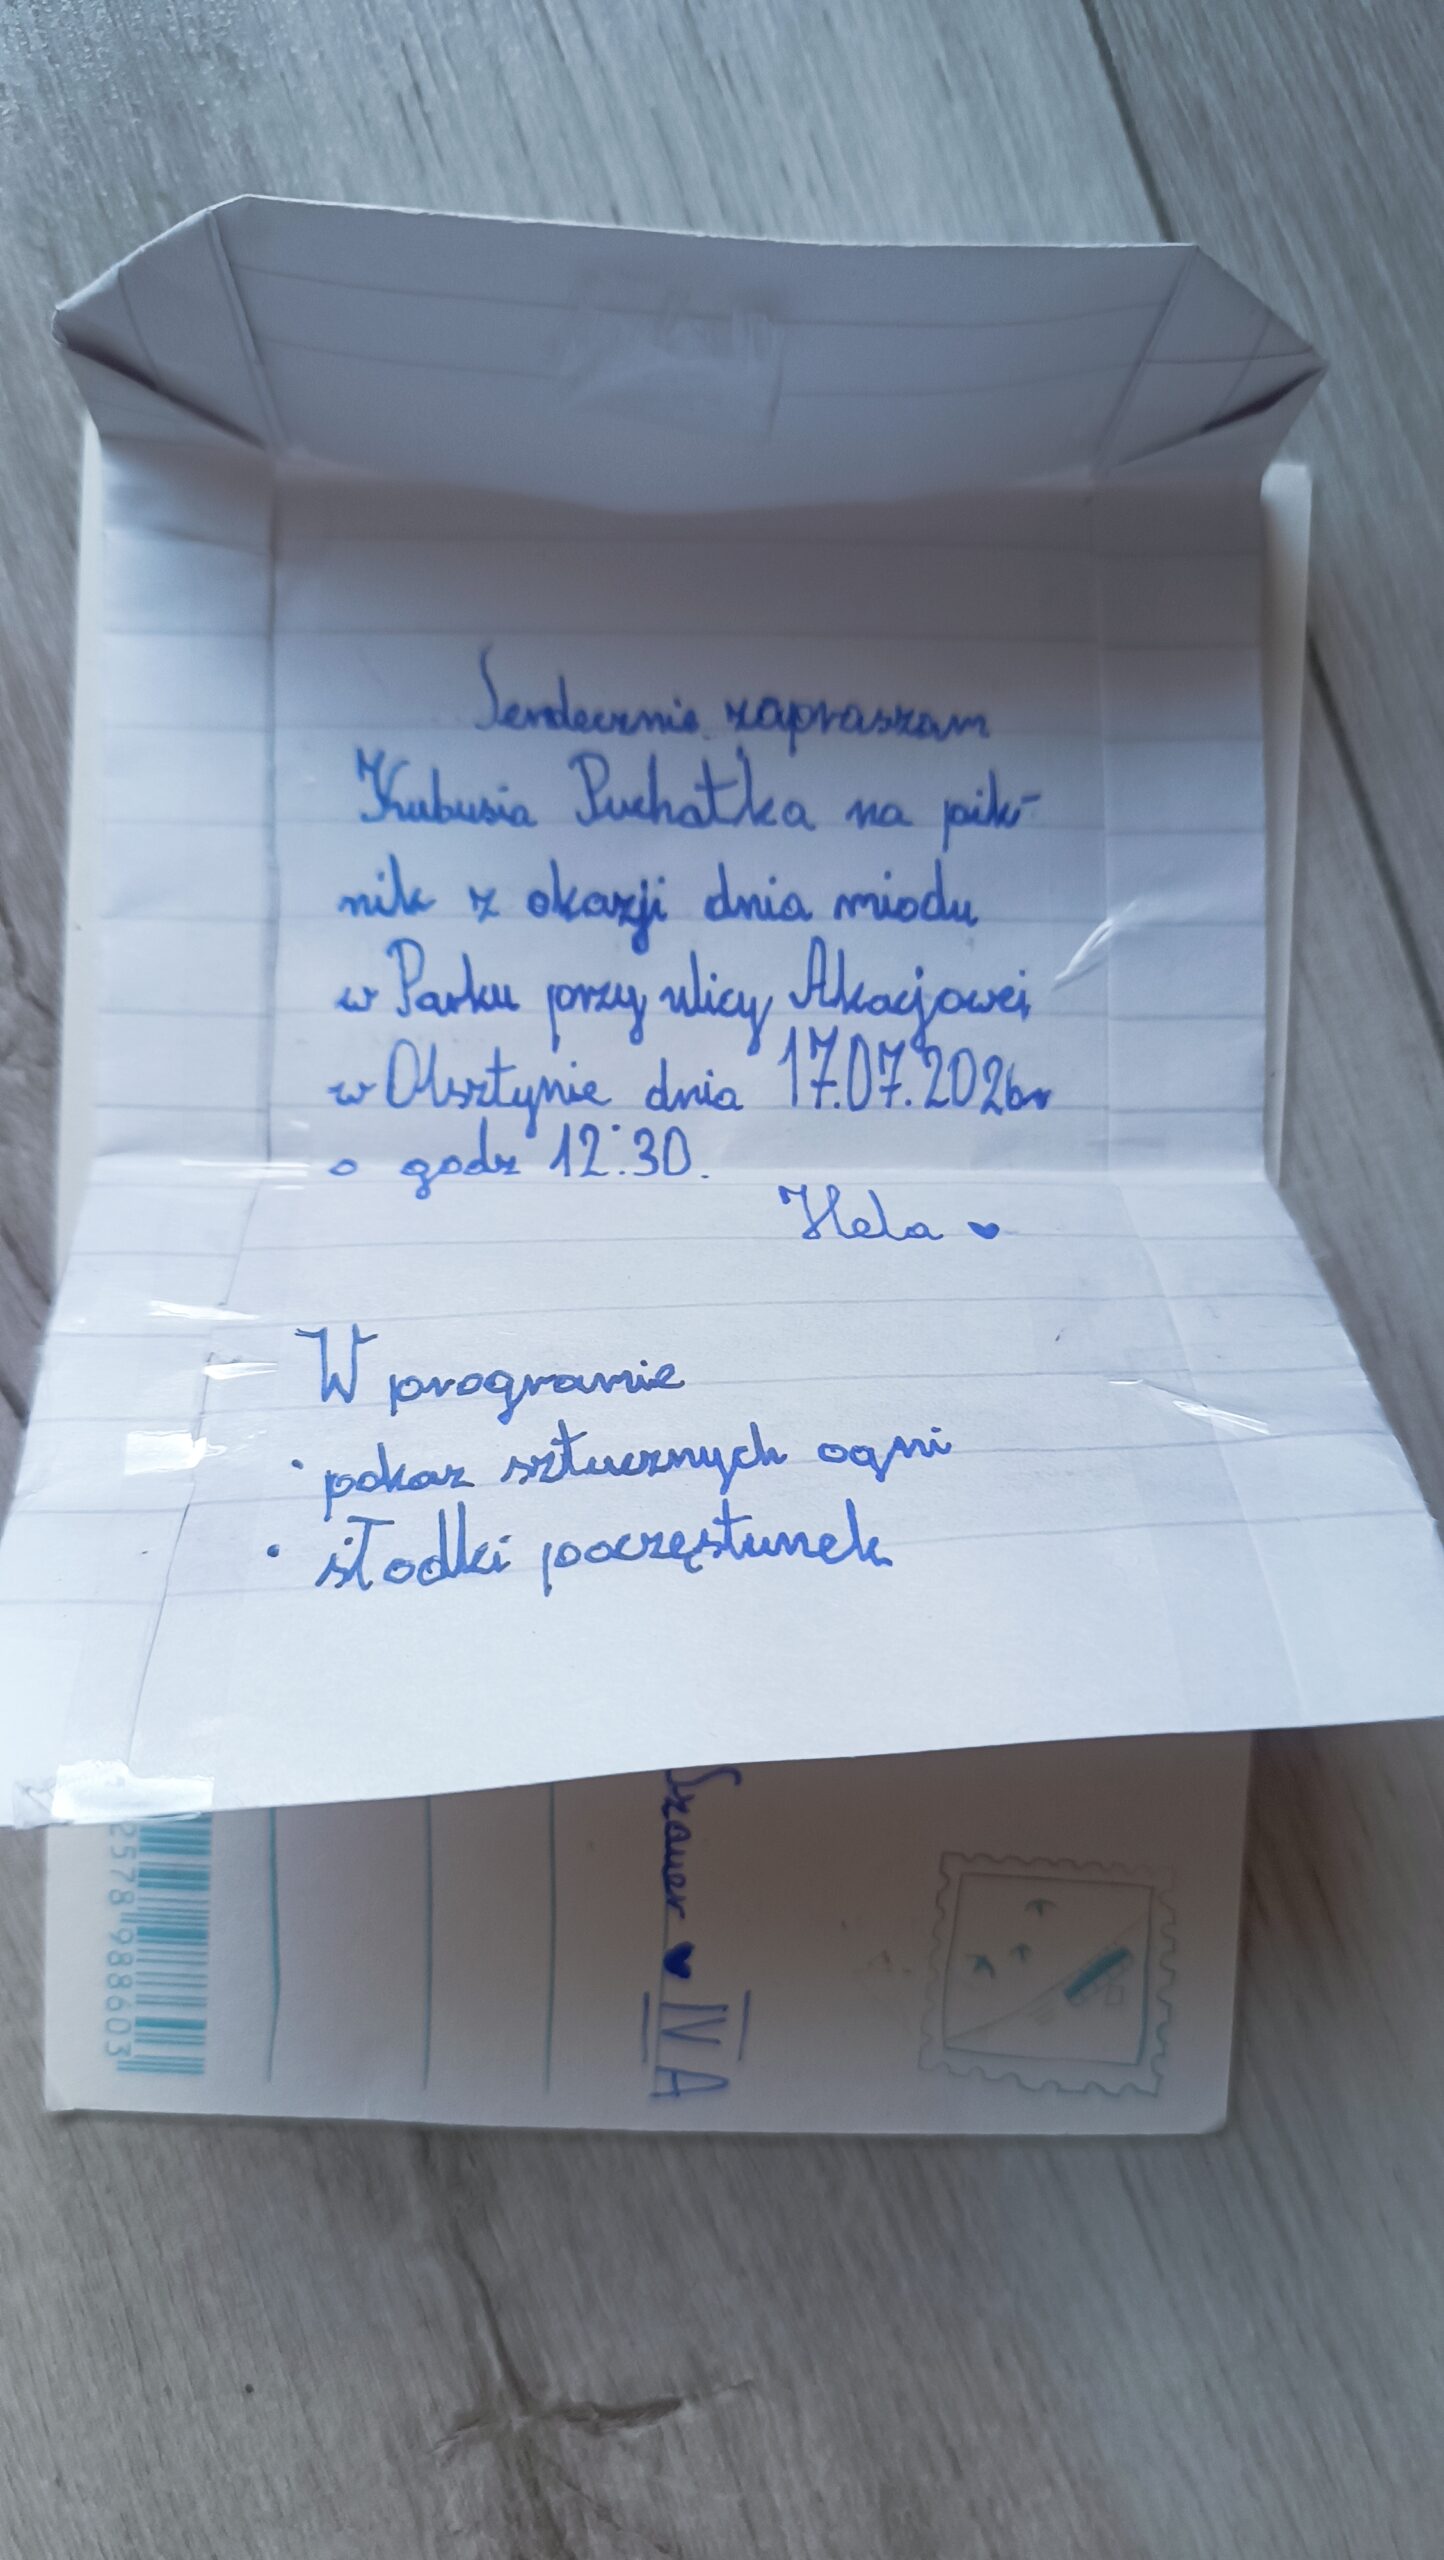 Serdecznie zapraszam
Kubusia Puchatka na pik-
nik z okazji dnia miodu
w Parku przy ulicy Akacjowej
w Olsztynie dnia 17.07.2026r
o godz 12:30.
Hela ♥
W programie
• pokaz sztucznych ogni
• słodki poczęstunek
♥ IV A
2578 988603